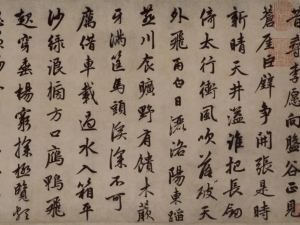 昔尋李愿向盤谷正見
蒼崖巨壁爭開張是時
新晴天井溢誰把長劍
倚太行衝風吹落破天
外飛雨白日灑洛陽東蹈
燕川食曠野有饋木蕨
牙滿筐馬頭溪深不可
厲借車載過水入箱平
沙綠浪榜方口鴈鴨飛
起穿垂楊窮探極覽頗